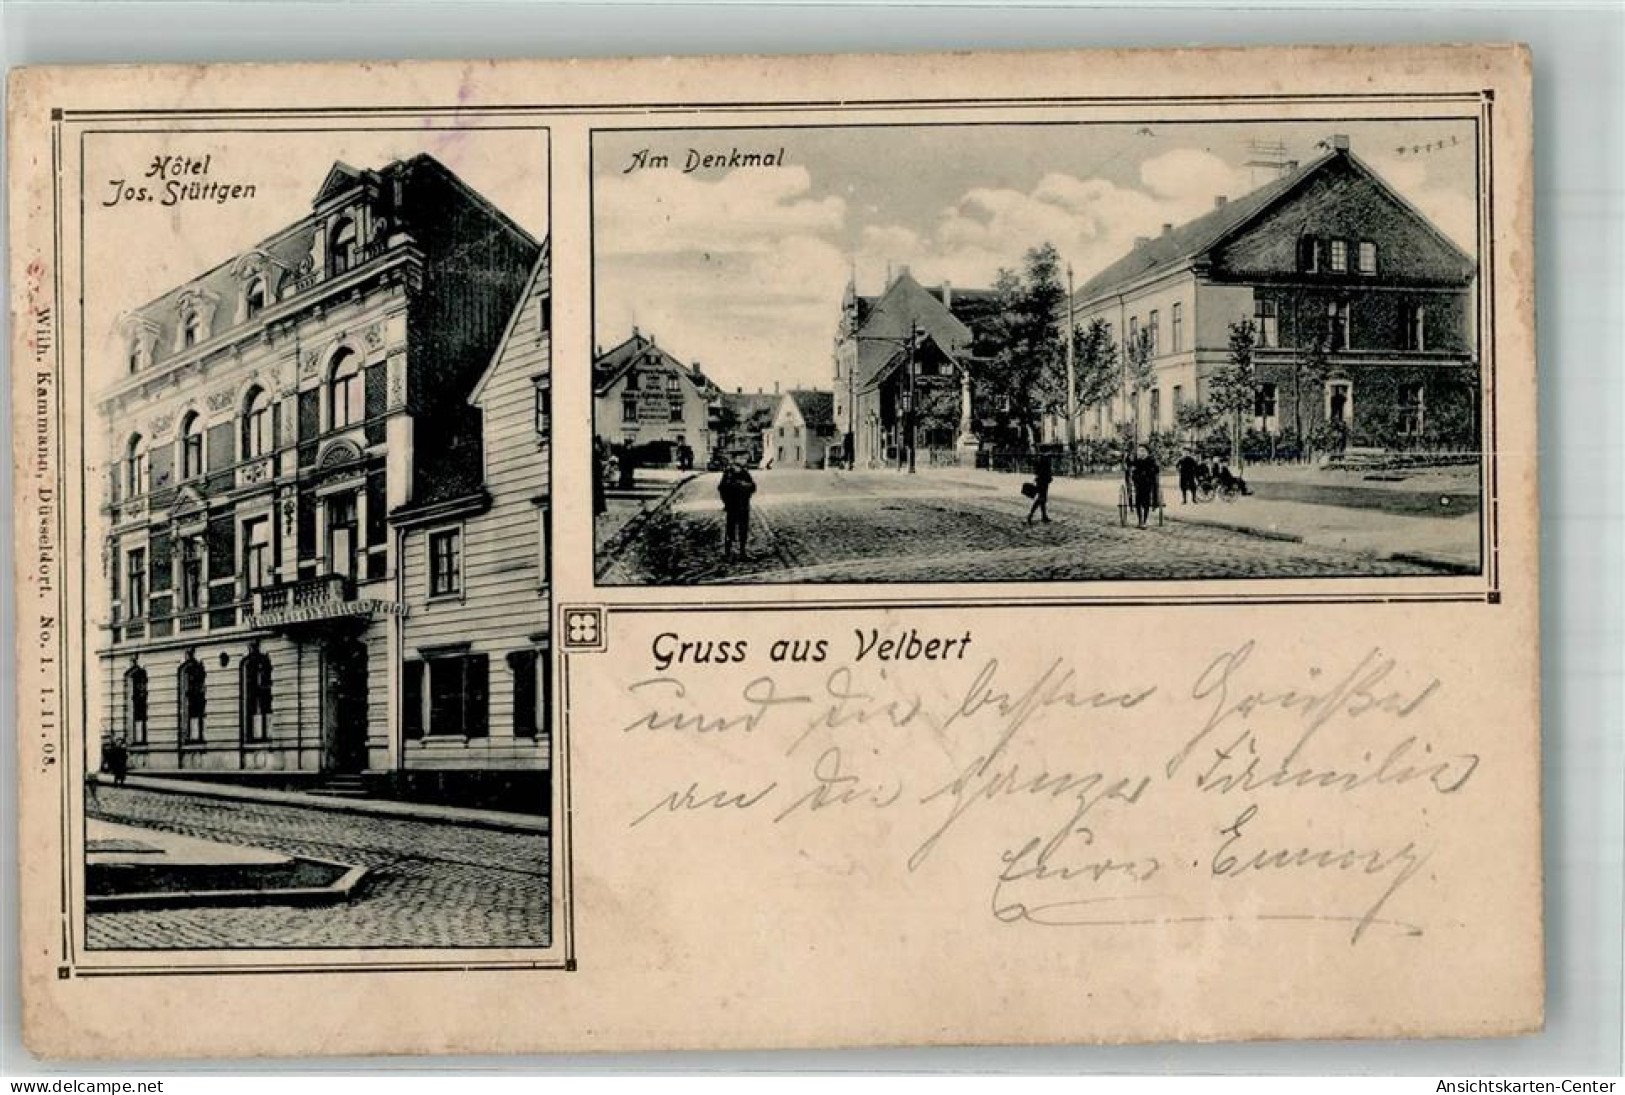 Hôtel
Jos. Stüttgen
Am Denkmal
Wilh. Kammann, Düsseldorf. No. 1. 1.11.08.
Gruss aus Velbert
und die besten Grüße
an die ganze Familie
Eure Emmy.
delcampe.net
Ansichtskarten-Center